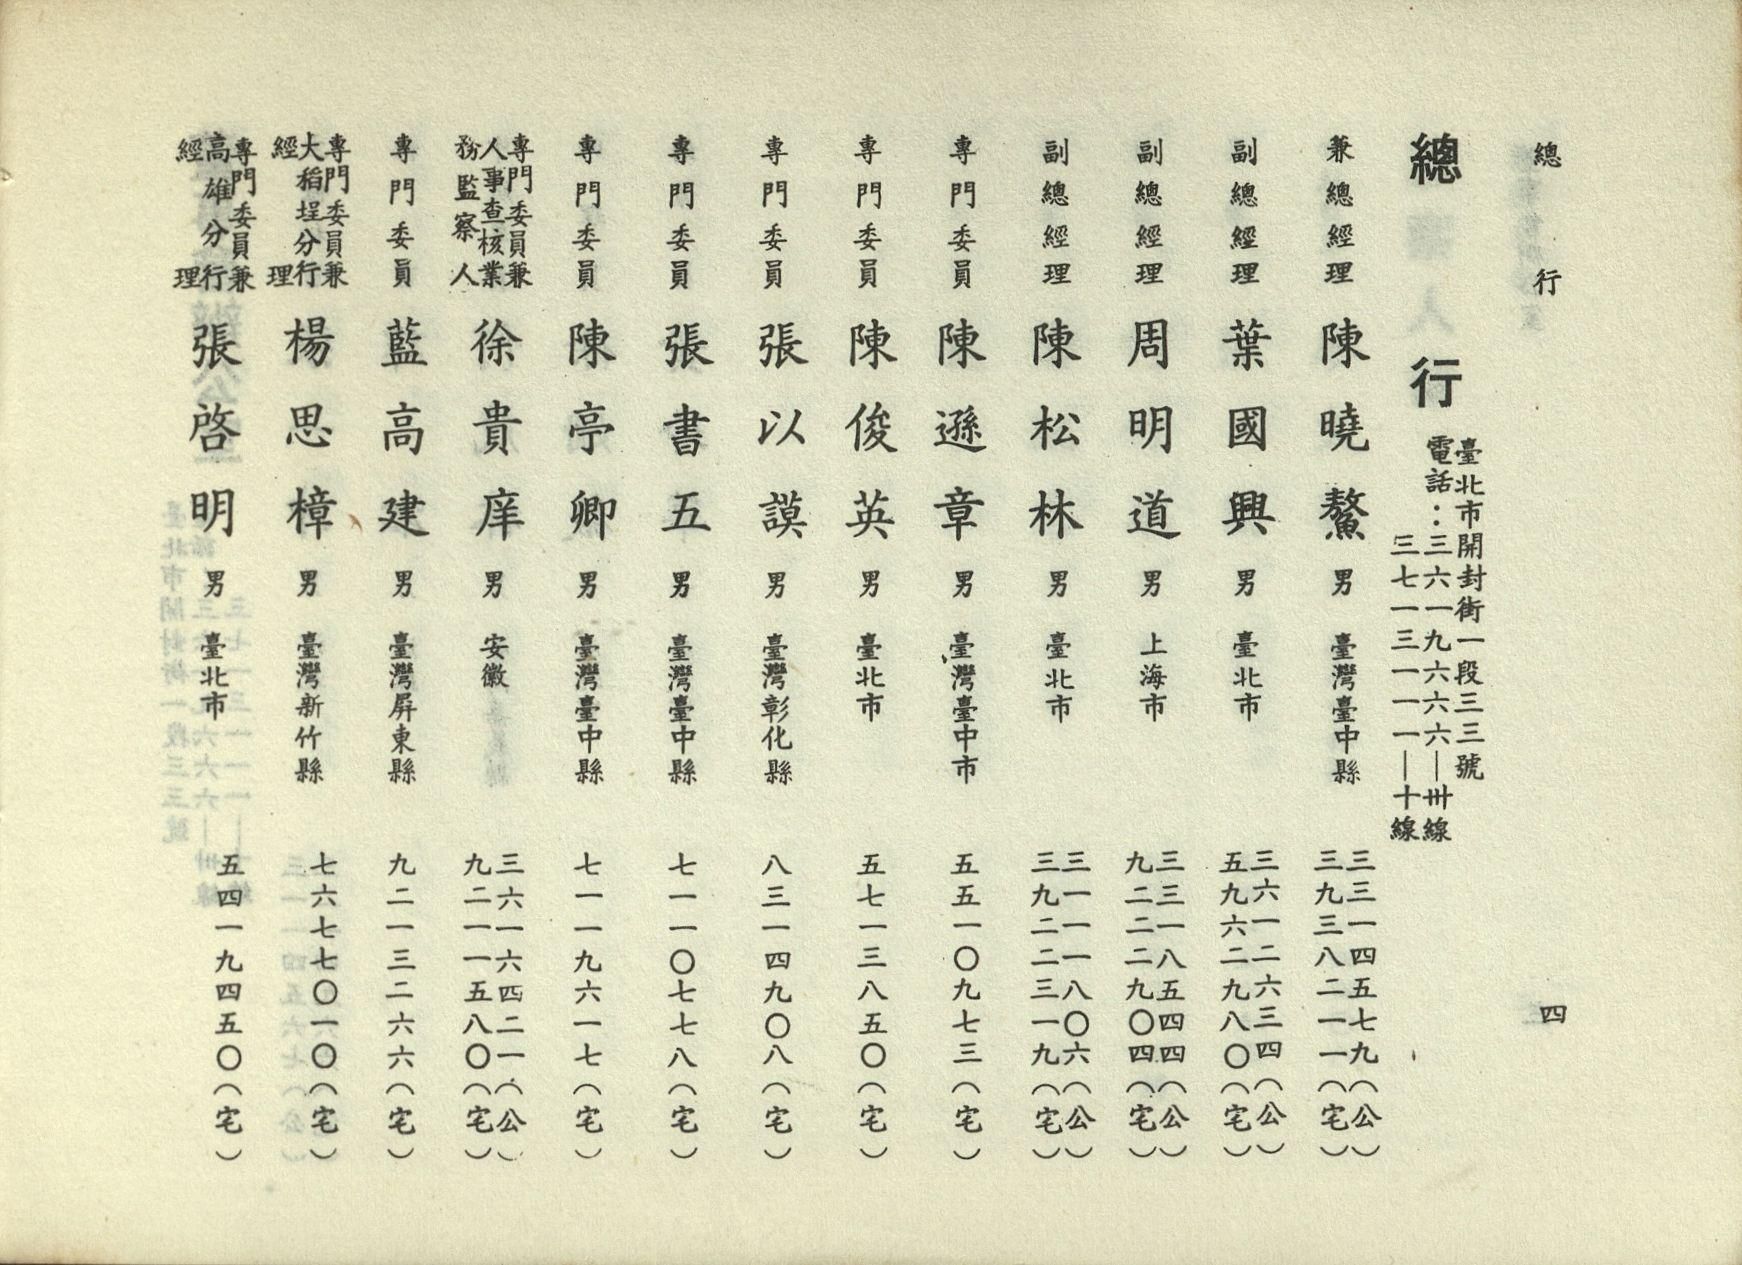 總行
四
總行
臺北市開封街一段三三號
電話：三六一九六六六｜卅線
三七一三一一一｜十線
兼總經理 陳曉鰲 男 臺灣臺中縣 三三一四五七九（公）
三九三八二一一（宅）
副總經理 葉國興 男 臺北市 三六一二六三四（公）
五九六二九八〇（宅）
副總經理 周明道 男 上海市 三三一八五四四（公）
九二二二九〇四（宅）
副總經理 陳松林 男 臺北市 三一一一八〇六（公）
三九二二三一九（宅）
專門委員 陳遜章 男 臺灣臺中市 五五一〇九七三（宅）
專門委員 陳俊英 男 臺北市 五七一三八五〇（宅）
專門委員 張以謨 男 臺灣彰化縣 八三一四九〇八（宅）
專門委員 張書五 男 臺灣臺中縣 七一一〇七七八（宅）
專門委員 陳亭卿 男 臺灣臺中縣 七一一九六一七（宅）
專門委員兼
人事查核業
務監察人 徐貴庠 男 安徽 三六一六四二一（公）
九二一一五八〇（宅）
專門委員 藍高建 男 臺灣屏東縣 九二一三二六六（宅）
專門委員兼
大稻埕分行
經理 楊思樟 男 臺灣新竹縣 七六七七〇一〇（宅）
專門委員兼
高雄分行
經理 張啓明 男 臺北市 五四一九四五〇（宅）